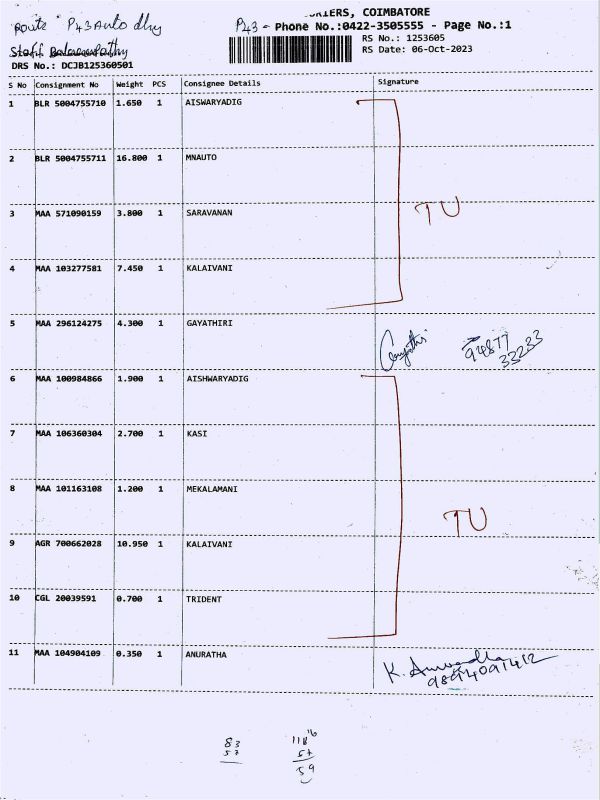 Route P43 Auto dly
P43 - Phone No.:0422-3505555 - Page No.:1
RIERS, COIMBATORE
Staff
RS No.: 1253605
RS Date: 06-Oct-2023
DRS No.: DCJB125360501
S No Consignment No Weight PCS Consignee Details Signature
1 BLR 5004755710 1.650 1 AISWARYADIG
2 BLR 5004755711 16.800 1 MNAUTO
TU
3 MAA 571090159 3.800 1 SARAVANAN
4 MAA 103277581 7.450 1 KALAIVANI
5 MAA 296124275 4.300 1 GAYATHIRI
Gayathri 94877
33233
6 MAA 100984866 1.900 1 AISHWARYADIG
7 MAA 106360304 2.700 1 KASI
8 MAA 101163108 1.200 1 MEKALAMANI
TU
9 AGR 700662028 10.950 1 KALAIVANI
10 CGL 20039591 0.700 1 TRIDENT
11 MAA 104904109 0.350 1 ANURATHA
K. Anuradha
9894091412
83
57
57
59